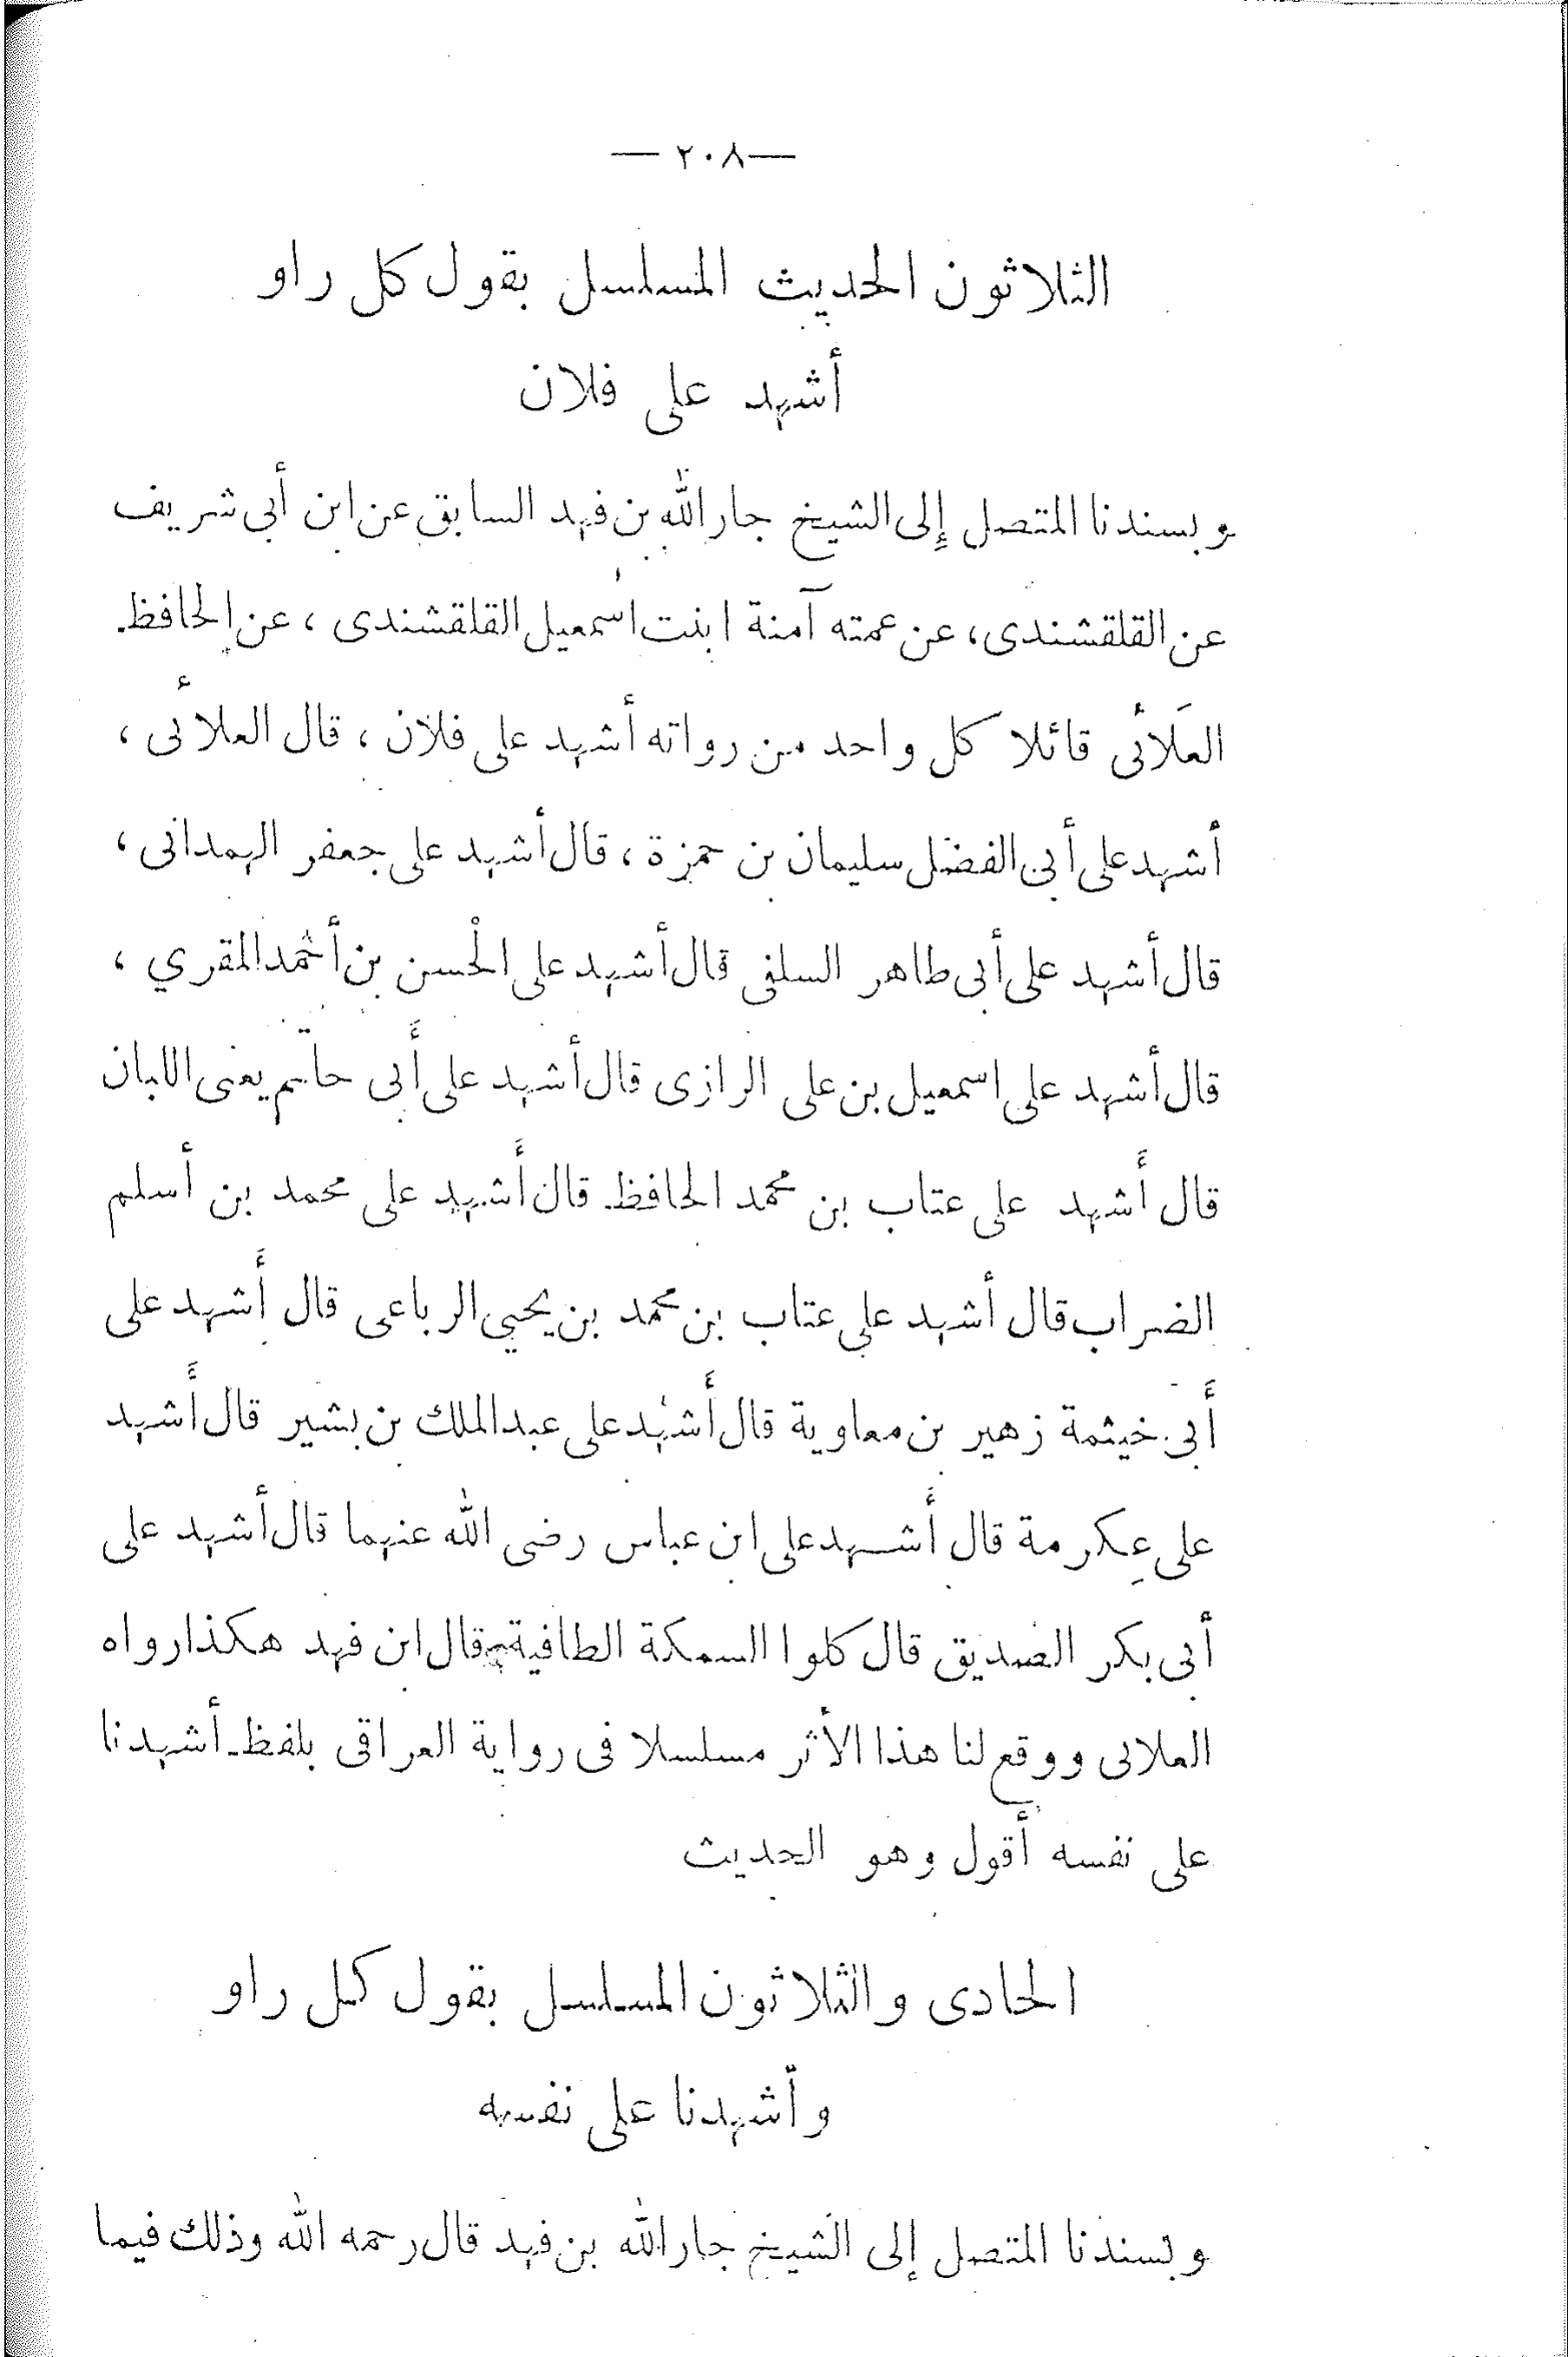 — ٢٠٨ —
الثلاثون الحديث المسلسل بقول كل راو
أشهد على فلان
وبسندنا المتصل إلى الشيخ جار الله بن فهد السابق عن ابن أبي شريف
عن القلقشندى، عن عمته آمنة ابنت اسمعيل القلقشندى، عن الحافظ
العلائى قائلا كل واحد من رواته أشهد على فلان، قال العلائى،
أشهد على أبى الفضل سليمان بن حمزة، قال أشهد على جعفر الهمدانى،
قال أشهد على أبى طاهر السلفى قال أشهد على الحسن بن أحمد المقري،
قال أشهد على اسمعيل بن على الرازى قال أشهد على أبى حاتم يعنى اللبان
قال أشهد على عتاب بن محمد الحافظ قال أشهد على محمد بن أسلم
الضراب قال أشهد على عتاب بن محمد بن يحيى الرباعى قال أشهد على
أبى خيثمة زهير بن معاوية قال أشهد على عبد الملك بن بشير قال أشهد
على عكرمة قال أشهد على ابن عباس رضى الله عنهما قال أشهد على
أبى بكر الصديق قال كلوا السمكة الطافية قال ابن فهد هكذا رواه
العلائى ووقع لنا هذا الأثر مسلسلا فى رواية العراقى بلفظ أشهدنا
على نفسه أقول وهو الحديث
الحادى والثلاثون المسلسل بقول كل راو
وأشهدنا على نفسه
وبسندنا المتصل إلى الشيخ جار الله بن فهد قال رحمه الله وذلك فيما